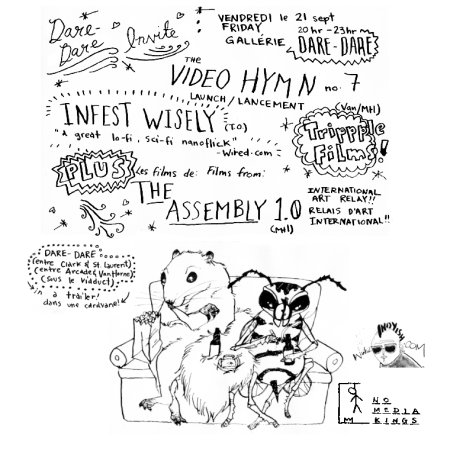 Dare-
Dare
Invite
VENDREDI le 21 sept
FRIDAY 20hr - 23hr
GALLÉRIE DARE-DARE
THE
VIDEO HYMN no. 7
LAUNCH/LANCEMENT
(Van/Mtl)
INFEST WISELY (T.O)
"A great lo-fi, sci-fi nanoflick"
- Wired.com -
Trippple
Films!
PLUS
Les films de: Films from:
THE
ASSEMBLY 1.0
(Mtl)
INTERNATIONAL
ART RELAY!!
RELAIS D'ART
INTERNATIONAL!!
DARE-DARE
(entre Clark & St. Laurent)
(entre Arcade & VanHorne)
(sous le Viaduct)
in a trailer!
dans une caravane!
.COM
NO
MEDIA
KINGS